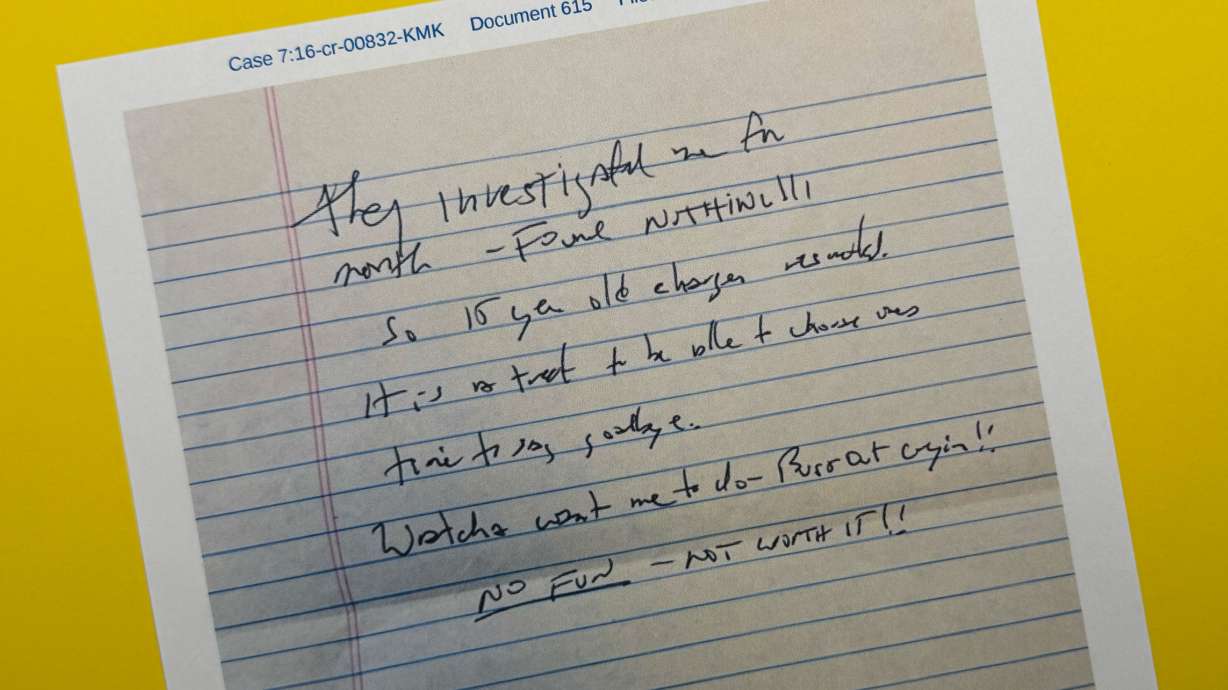 Case 7:16-cr-00832-KMK Document 615
They investigated me for
month – Found NOTHING!!!
So 15 year old charges resulted.
It is a treat to be able to choose
time to say goodbye.
Watcha want me to do – Burst out cryin!!
NO FUN – NOT WORTH IT!!